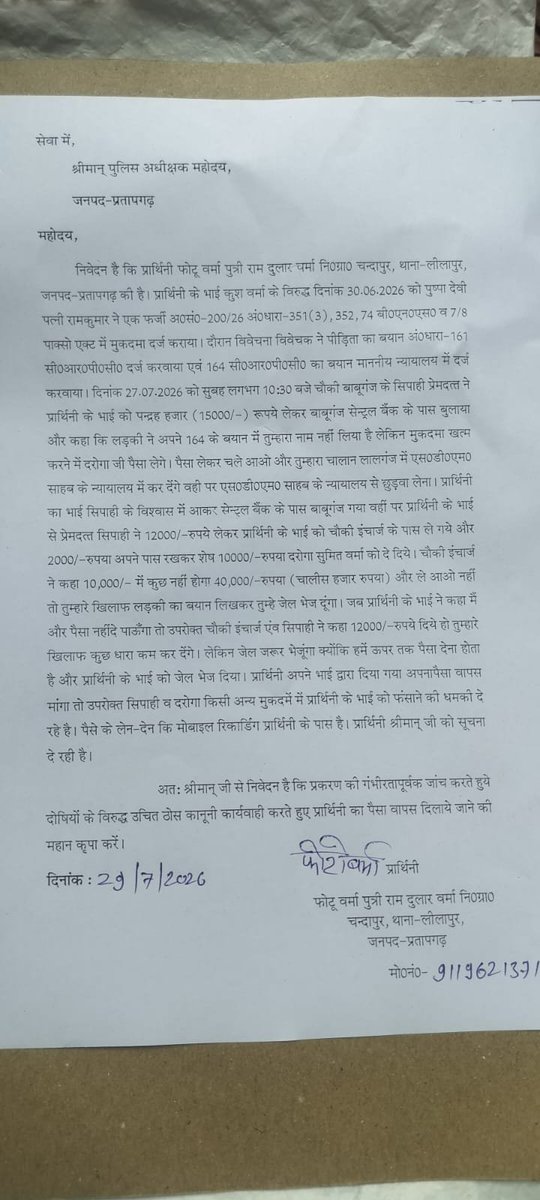 सेवा में,
श्रीमान् पुलिस अधीक्षक महोदय,
जनपद-प्रतापगढ़
महोदय,
निवेदन है कि प्रार्थिनी फोटू वर्मा पुत्री राम दुलार वर्मा नि0ग्रा0 चन्दापुर, थाना-लीलापुर,
जनपद-प्रतापगढ़ की है। प्रार्थिनी के भाई कुश वर्मा के विरुद्ध दिनांक 30.06.2026 को पुष्पा देवी
पत्नी रामकुमार ने एक फर्जी अ0सं0-200/26 अं0धारा-351(3), 352, 74 बी0एन0एस0 व 7/8
पाक्सो एक्ट में मुकदमा दर्ज कराया। दौरान विवेचना विवेचक ने पीड़िता का बयान अं0धारा-161
सी0आर0पी0सी0 दर्ज करवाया एवं 164 सी0आर0पी0सी0 का बयान माननीय न्यायालय में दर्ज
करवाया। दिनांक 27.07.2026 को सुबह लगभग 10:30 बजे चौकी बाबूगंज के सिपाही प्रेमदत्त ने
प्रार्थिनी के भाई को पन्द्रह हजार (15000/-) रूपये लेकर बाबूगंज सेन्ट्रल बैंक के पास बुलाया
और कहा कि लड़की ने अपने 164 के बयान में तुम्हारा नाम नहीं लिया है लेकिन मुकदमा खत्म
करने में दरोगा जी पैसा लेंगे। पैसा लेकर चले आओ और तुम्हारा चालान लालगंज में एस0डी0एम0
साहब के न्यायालय में कर देंगे वही पर एस0डी0एम0 साहब के न्यायालय से छुड़वा लेना। प्रार्थिनी
का भाई सिपाही के विश्वास में आकर सेन्ट्रल बैंक के पास बाबूगंज गया वहीं पर प्रार्थिनी के भाई
से प्रेमदत्त सिपाही ने 12000/-रुपये लेकर प्रार्थिनी के भाई को चौकी इंचार्ज के पास ले गये और
2000/-रुपया अपने पास रखकर शेष 10000/-रुपया दरोगा सुमित वर्मा को दे दिये। चौकी इंचार्ज
ने कहा 10,000/- में कुछ नहीं होगा 40,000/-रुपया (चालीस हजार रुपया) और ले आओ नहीं
तो तुम्हारे खिलाफ लड़की का बयान लिखकर तुम्हे जेल भेज दूंगा। जब प्रार्थिनी के भाई ने कहा मैं
और पैसा नहींदे पाऊँगा तो उपरोक्त चौकी इंचार्ज एंव सिपाही ने कहा 12000/-रुपये दिये हो तुम्हारे
खिलाफ कुछ धारा कम कर देंगे। लेकिन जेल जरूर भेजूंगा क्योंकि हमें ऊपर तक पैसा देना होता
है और प्रार्थिनी के भाई को जेल भेज दिया। प्रार्थिनी अपने भाई द्वारा दिया गया अपनापैसा वापस
मांगा तो उपरोक्त सिपाही व दरोगा किसी अन्य मुकदमें में प्रार्थिनी के भाई को फंसाने की धमकी दे
रहे है। पैसे के लेन-देन कि मोबाइल रिकार्डिंग प्रार्थिनी के पास है। प्रार्थिनी श्रीमान् जी को सूचना
दे रही है।
अत: श्रीमान् जी से निवेदन है कि प्रकरण की गंभीरतापूर्वक जांच करते हुये
दोषियों के विरुद्ध उचित ठोस कानूनी कार्यवाही करते हुए प्रार्थिनी का पैसा वापस दिलाये जाने की
महान कृपा करें।
दिनांक : 29/7/2026 प्रार्थिनी
फोटू वर्मा पुत्री राम दुलार वर्मा नि0ग्रा0
चन्दापुर, थाना-लीलापुर,
जनपद-प्रतापगढ़
मो0नं0- 9119621371